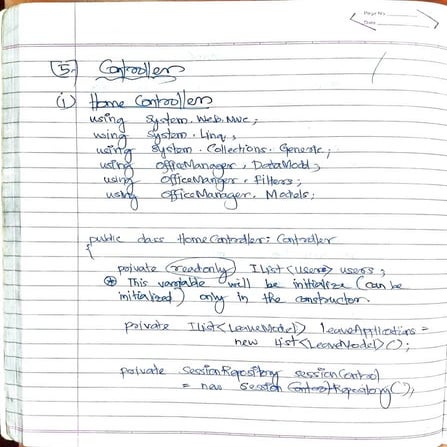 Page No.
Date
5. Controllers
(i) Home Controllers
using System.Web.Mvc;
using System.Linq;
using System.Collections.Generic;
using OfficeManager.DataModel;
using OfficeManager.Filters;
using OfficeManager.Models;
public class HomeController: Controller
{
private readonly IList<Users> users;
* This variable will be initialize (can be
initialized) only in the constructor
private IList<LeaveModel> leaveApplications =
new List<LeaveModel>();
private SessionRepository sessionControl
= new SessionControlRepository();